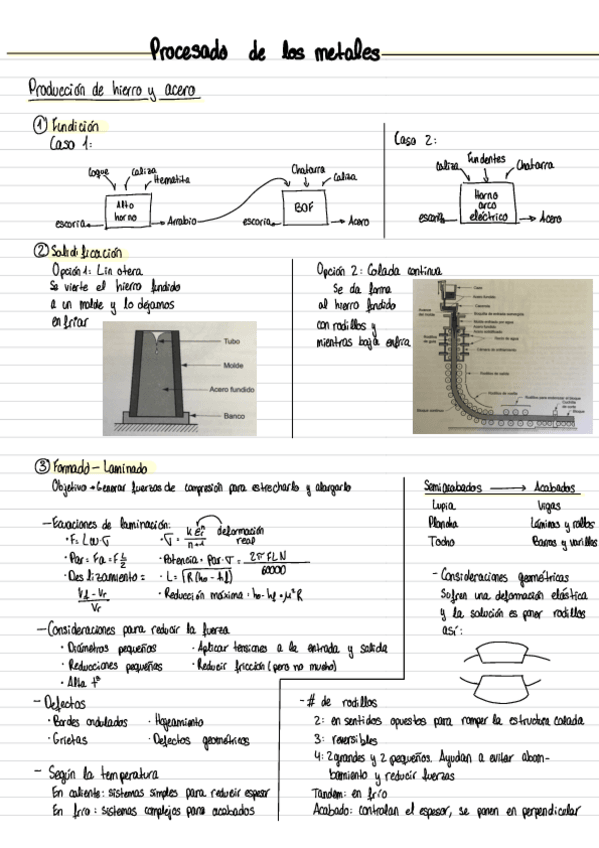 Procesado de los metales
Producción de hierro y acero
① Fundición
Caso 1:
Coque
Caliza
Hematita
Alto
horno
escoria
Arrabio
Chatarra
Caliza
BOF
escoria
Acero
Caso 2:
Caliza
Fundentes
Chatarra
Horno
arco
eléctrico
escoria
Acero
② Solidificación
Opción 1: Lingotera
Se vierte el hierro fundido
a un molde y lo dejamos
enfriar
Tubo
Molde
Acero fundido
Banco
Opción 2: Colada continua
Se da forma
al hierro fundido
con rodillos y
mientras baja enfría
Acero fundido
③ Formado - Laminado
Objetivo → Generar fuerzas de compresión para estrecharlo y alargarlo
- Ecuaciones de laminación:
· F = Lω·σ̄
· σ̄ = kεⁿ / n+1
deformación
real
· Par = Fa = F L/2
· Potencia = Par·ω = 2π FLN / 60000
· Deslizamiento =
Vf - Vr / Vr
· L = √R(ho - hf)
· Reducción máxima: ho - hf = μ²R
- Consideraciones para reducir la fuerza
· Diámetros pequeños
· Aplicar tensiones a la entrada y salida
· Reducciones pequeñas
· Reducir fricción (pero no mucho)
· Alta tª
- Defectos
· Bordes ondulados
· Hojeamiento
· Grietas
· Defectos geométricos
- Según la temperatura
En caliente: sistemas simples para reducir espesor
En frío: sistemas complejos para acabados
Semiacabados → Acabados
Lupia
Vigas
Plancha
Láminas y rollos
Tocho
Barras y varillas
- Consideraciones geométricas
Sufren una deformación elástica
y la solución es poner rodillos
así:
- # de rodillos
2: en sentidos opuestos para romper la estructura colada
3: reversibles
4: 2 grandes y 2 pequeños. Ayudan a evitar abom-
bamiento y reducir fuerzas
Tandem: en frío
Acabado: controlan el espesor, se ponen en perpendicular